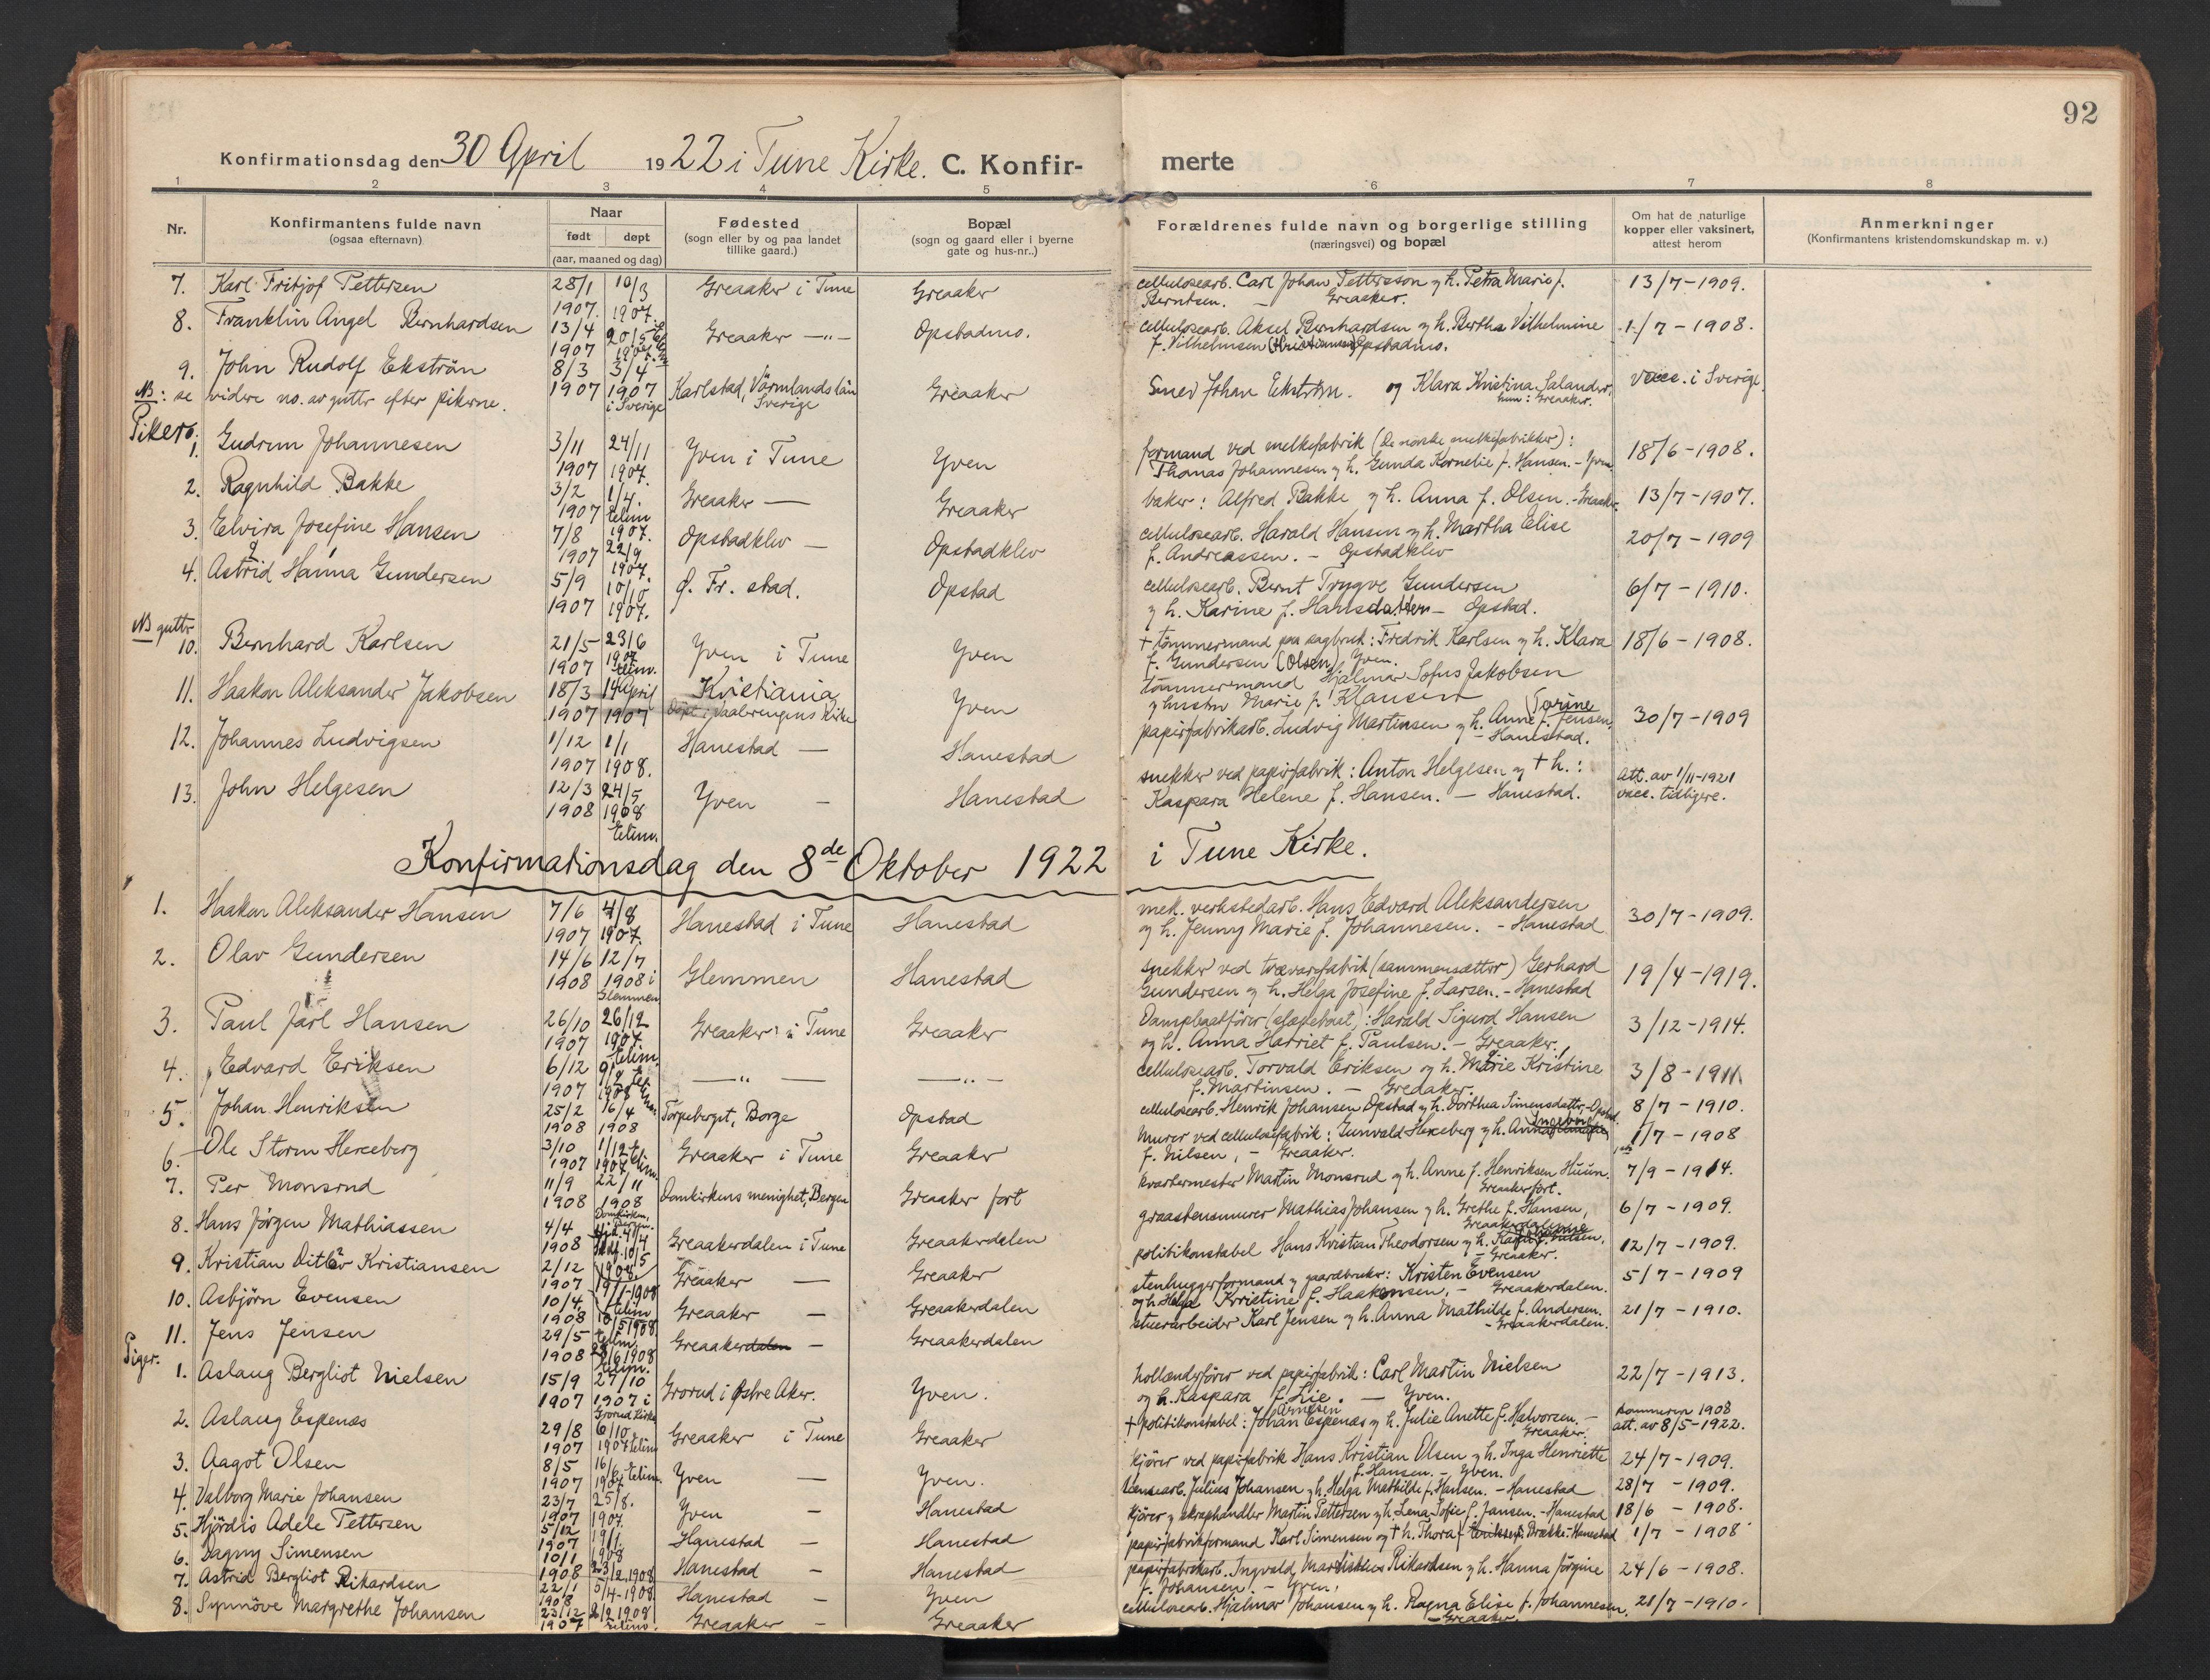 92
Konfirmationsdag den 30 April 1922 i Tune Kirke. C. Konfir-merte
1 2 3 4 5 6 7 8
Nr. Konfirmantens fulde navn (ogsaa efternavn) Naar født døpt (aar, maaned og dag) Fødested (sogn eller by og paa landet tillike gaard.) Bopæl (sogn og gaard eller i byerne gate og hus-nr..) Forældrenes fulde navn og borgerlige stilling (næringsvei) og bopæl Om hat de naturlige kopper eller vaksinert, attest herom Anmerkninger (Konfirmantens kristendomskundskap m. v.)
7. Karl Fritjof Pettersen 28/1 1907. 10/3 1907. Greaaker i Tune Greaaker cellulosearb. Carl Johan Pettersson og h. Petra Marie f. Berntsen. – Greaaker. 13/7-1909.
8. Franklin Angel Bernhardsen 13/4 1907 20/5 Greaaker —"— Opstadmo. cellulosearb. Aksel Bernhardsen og h. Bertha Vilhelmine f. Vilhelmsen (Kristiansen) Opstadmo. 1/7-1908.
9. John Rudolf Ekströn 8/3 1907 3/4 1907 i Sverige Karlstad, Värmlands län Sverige Greaaker Smed Johan Ekström. og Klara Kristina Salander, hun: Greaaker. vacc. i Sverige.
NB: se videre no. av gutter efter pikerne.
Piker:
1. Gudrun Johannesen 3/11 1907 24/11 1907. Yven i Tune Yven formand ved melkefabrik (De norske melkefabrikker): Thomas Johannesen og h. Gunda Kornelie f. Hansen. – Yven 18/6-1908.
2. Ragnhild Bakke 3/2 1907 1/4. eetim 1907. Greaaker — Greaaker baker: Alfred Bakke og h. Anna f. Olsen. – Greaaker. 13/7-1907.
3. Elvira Josefine Hansen 7/8 1907 22/9 1907. Opstadklev — Opstadklev cellulosearb. Harald Hansen og h. Martha Elise f. Andreassen. – Opstadklev 20/7-1909
4. Astrid Hanna Gundersen 5/9 1907 10/10 1907. Ø. Fr. stad. Opstad cellulosearb. Bernt Trygve Gundersen og h. Karine f. Hansdatter – Opstad. 6/7-1910.
NB gutter
10. Bernhard Karlsen 21/5 1907 23/6 1907 eetim. Yven i Tune Yven + tömmermand paa sagbruk: Fredrik Karlsen og h. Klara f. Gundersen (Olsen) Yven. 18/6-1908.
11. Haakon Aleksander Jakobsen 18/3 1907 14 April 1907 Kristiania Döpt i Vaalerengens Kirke Yven tömmermand Hjalmar Sofus Jakobsen og hustru Marie f. Klausen
12. Johannes Ludvigsen 1/12 1907 1/1 1908. Hanestad — Hanestad papirfabrikarb. Ludvig Martinsen og h. Anne Torine f. Jensen, – Hanestad. 30/7-1909
13. John Helgesen 12/3 1908 24/5 1908 eetim. Yven – Hanestad snekker ved papirfabrik: Anton Helgesen og + h.: Kaspara Helene f. Hansen. – Hanestad. Att. av 1/11-1921 vacc. tidligere.
Konfirmationsdag den 8de Oktober 1922 i Tune Kirke.
1. Haakon Aleksander Hansen 7/6 1907 4/8 1907. Hanestad i Tune Hanestad mek. verkstedarb. Hans Edvard Aleksandersen og h. Jenny Marie f. Johannesen. – Hanestad 30/7-1909.
2. Olav Gundersen 14/6 1908 12/7 1908 i Glemmen Glemmen Hanestad snekker ved trævarefabrik (sammensætter) Gerhard Gundersen og h. Helga Josefine f. Larsen. – Hanestad 19/4-1919.
3. Paul Jarl Hansen 26/10 1907 26/12 1907. eetim Greaaker i Tune Greaaker Dampbaatfører (slæpebaat): Harald Sigurd Hansen og h. Anna Harriet f. Paulsen. – Greaaker. 3/12-1914.
4. Edvard Eriksen 6/12 1907 9/2 1908 —"— —"— cellulosearb. Torvald Eriksen og h. Marie Kristine f. Martinsen. – Greaaker. 3/8-1911
5. Johan Henriksen 25/2 1908 16/4 1908 Torpeberget, Borge Opstad cellulosearb. Henrik Johansen Opstad og h. Dorthea Simensdatter, – Opstad. 8/7-1910.
6. Ole Storm Herceberg 3/10 1907 1/12 1907 eetim. Greaaker i Tune Greaaker Murer ved cellulosefabrik: Gunvald Herceberg og h. Ingeborg f. Nilsen, – Greaaker. 1/7-1908
7. Per Monsrud 11/9 1908 22/11 1908 Domkirken, Bergen. Domkirkens menighet, Bergen Greaaker fort kvartermester Martin Monsrud og h. Anne f. Henriksen Huun. Greaaker fort. 7/9-1914.
8. Hans Jörgen Mathiassen 4/4 1908 Greaakerdalen i Tune Greaakerdalen graastensmurer Mathias Johansen og h. Grethe f. Hansen, Greaakerdalen 6/7-1909.
9. Kristian Ditlev Kristiansen 2/12 1907 19/1-1908 Greaaker — Greaaker politikonstabel Hans Kristian Theodorsen og h. – Greaaker. 12/7-1909.
10. Asbjörn Evensen 10/4 1908 10/5 1908 Greaaker — Greaakerdalen stenhuggerformand og gaardbruker: Kristen Evensen og h. Helga Kristine f. Haakonsen, – Greaakerdalen. 5/7-1909
11. Jens Jensen 29/5 1908 28/6 1908 eetim. Greaakerdalen – Greaakerdalen stuerarbeider Karl Jensen og h. Anna Mathilde f. Andersen. – Greaakerdalen. 21/7-1910.
Piger.
1. Aslaug Bergliot Nielsen 15/9 1907 27/10 1907 i Grorud Kirke Grorud i Østre Aker. Yven. hollænderfører ved papirfabrik: Carl Martin Nielsen og h. Kaspara f. Lie. — Yven. 22/7-1913.
2. Aslaug Espenæs 29/8 1907 6/10. 1907 eetim Greaaker i Tune Greaaker + politikonstabel: Johan Arnesen Espenæs og h. Julie Anette f. Halvorsen. – Greaaker. sommeren 1908 att. av 8/5-1922.
3. Aagot Olsen 8/5 1907 16/6 1907 eetim. Yven — Yven. kjører ved papirfabrik Hans Kristian Olsen og h. Inga Henriette f. Hansen. – Yven. 24/7-1909.
4. Valborg Marie Johansen 23/7 1907 25/8. 1907. Yven – Hanestad Julius Johansen og h. Helga Mathilde f. Hansen. – Hanestad 28/7-1909.
5. Hjördis Adele Pettersen 5/12 1907 19/1. 1908 Hanestad – Hanestad kjører og skraphandler Martin Pettersen og h. Lena Sofie f. Jansen. – Hanestad 18/6-1908.
6. Dagny Simensen 10/1 1908 23/2 1908 Hanestad – Hanestad papirfabrikformand Karl Simensen og + h. Thora f. Brække. – Hanestad 1/7-1908
7. Astrid Bergliot Rikardsen 22/1 1908 5/4-1908. Hanestad – Yven papirfabrikarb. Ingvald Martinius Rikardsen og h. Hanna Jörgine f. Johansen. – Yven. 24/6-1908.
8. Synnöve Margrethe Johansen 23/12 1907 2/2 1908 eetim. Greaaker – Greaaker cellulosearb. Hjalmar Johansen og h. Ragna Elise f. Johannesen. – Greaaker. 21/7-1910.